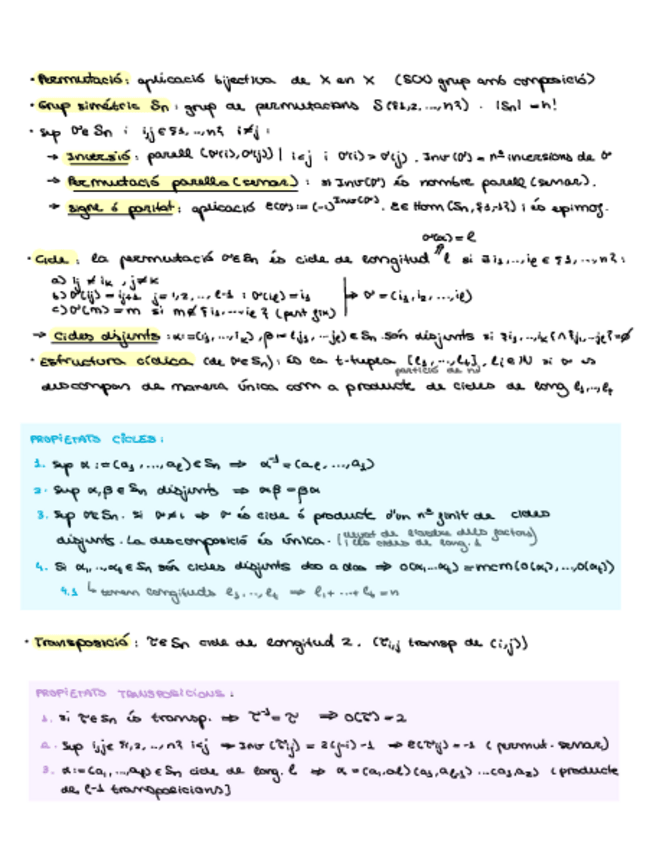 · Permutació: aplicació bijectiva de X en X (S(X) grup amb composició)
· Grup simètric Sn: grup de permutacions S({1,2,...,n}). |Sn| = n!
· Sup σ∈Sn i i,j∈{1,...,n} i≠j:
→ Inversió: parell (σ(i),σ(j)) | i<j i σ(i)>σ(j). Inv(σ) = nº inversions de σ
→ Permutació parella (senar): si Inv(σ) és nombre parell (senar).
→ signe ó paritat: aplicació ε(σ):=(-1)^Inv(σ). ε∈Hom(Sn,{1,-1}) i és epimof.
o(α)=l
· Cicle: la permutació σ∈Sn és cicle de longitud l si ∃i₁,...,iℓ∈{1,...,n}:
a) ij ≠ ik, j≠k
b) σ(ij) = ij+1 j=1,2,...,l-1; σ(iℓ)=i₁ → σ=(i₁,i₂,...,iℓ)
c) σ(m)=m si m∉{i₁,...,iℓ} (punt fix)
→ Cicles disjunts: α:=(i₁,...,ik), β:=(j₁,...,jℓ)∈Sn són disjunts si {i₁,...,ik}∩{j₁,...,jℓ}=∅
· Estructura cíclica (de σ∈Sn): és la t-tupla [l₁,...,lt], li∈ℕ si σ es
partició de n
descompon de manera única com a producte de cicles de long l₁,...,lt
PROPIETATS CICLES:
1. Sup α:=(a₁,...,aℓ)∈Sn ⇒ α⁻¹=(aℓ,...,a₁)
2. Sup α,β∈Sn disjunts ⇒ αβ=βα
3. Sup σ∈Sn. Si σ≠1 ⇒ σ és cicle ó producte d'un nº finit de cicles
disjunts. La descomposició és única. (llevat de l'ordre dels factors
i els cicles de long. 1)
4. Si α₁,...,αt∈Sn són cicles disjunts dos a dos ⇒ o(α₁...αt)=mcm(o(α₁),...,o(αt))
4.1 ↳ tenen longituds l₁,...,lt ⇒ l₁+...+lt=n
· Transposició: τ∈Sn cicle de longitud 2. (τi,j transp de (i,j))
PROPIETATS TRANSPOSICIONS:
1. si τ∈Sn és transp. ⇒ τ⁻¹=τ ⇒ o(τ)=2
2. Sup i,j∈{1,2,...,n} i<j ⇒ Inv(τij) = 2(j-i)-1 ⇒ ε(τij)=-1 (permut. senar)
3. α:=(a₁,...,aℓ)∈Sn cicle de long. l ⇒ α=(a₁,aℓ)(a₁,aℓ-1)...(a₁,a₂) (producte
de l-1 transposicions)